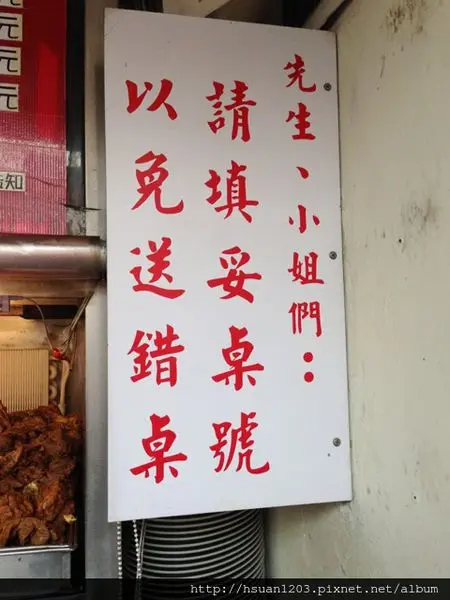 先生、小姐們：
請填妥桌號
以免送錯桌
元
元
元
元
告知
http://hsuan1203.pixnet.net/album